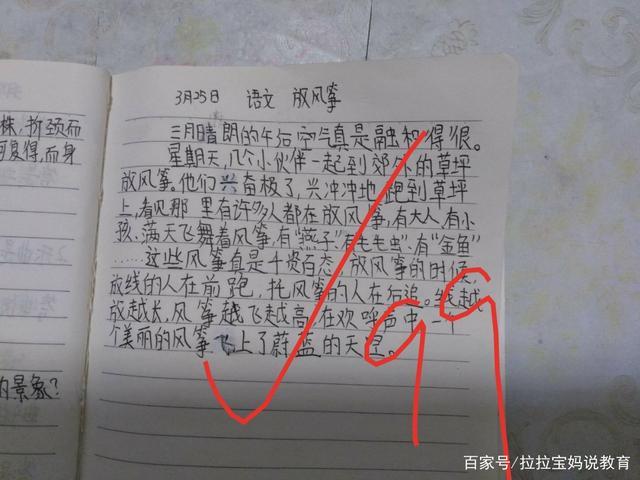 株,折颈而
可复得,而身
的景象?
3月25日 语文 放风筝
三月晴朗的午后空气真是融和得很。
星期天,几个小伙伴一起到郊外的草坪
放风筝。他们兴奋极了,兴冲冲地跑到草坪
上,看见那里有许多人都在放风筝,有大人,有小
孩,满天飞舞着风筝,有“燕子”有毛毛虫、有“金鱼”
……这些风筝真是千资百态,放风筝的时候,
放线的人在前跑,托风筝的人在后追。线越
放越长,风筝越飞越高,在欢呼声中,一个
个美丽的风筝飞上了蔚蓝的天空。
99
百家号/拉拉宝妈说教育